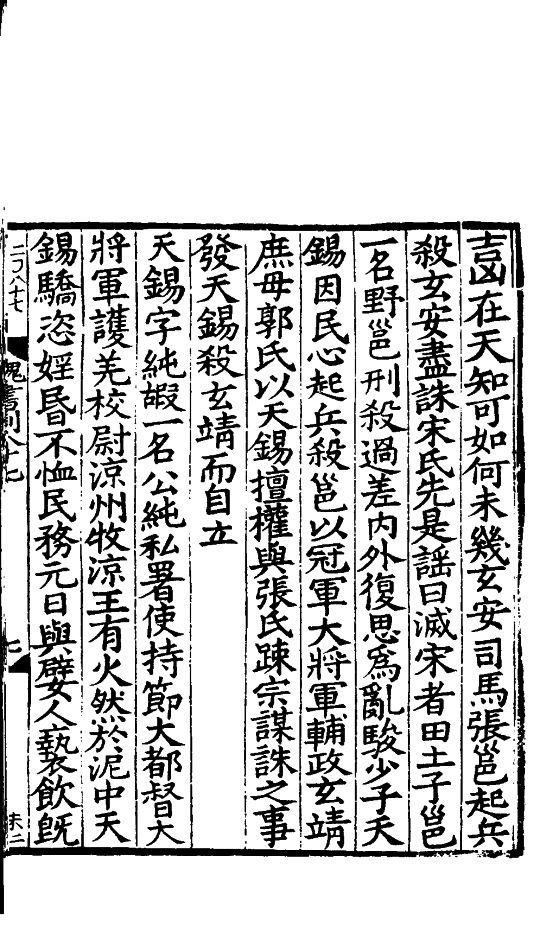 吉凶在天知可如何未幾玄安司馬張邕起兵
殺玄安盡誅宋氏先是謡曰滅宋者田土子邕
一名野邕刑殺過差内外復思爲亂駿少子天
錫因民心起兵殺邕以冠軍大將軍輔政玄靖
庶母郭氏以天錫擅權與張氏踈宗謀誅之事
發天錫殺玄靖而自立
天錫字純嘏一名公純私署使持節大都督大
將軍護羌校尉涼州牧涼王有火然於泥中天
錫驕恣婬昏不恤民務元日與嬖人褻飲旣
魏書列八十七
七